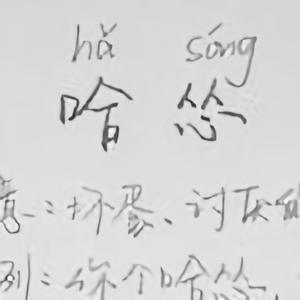 hǎ sóng
哈怂
意:坏蛋、讨厌
例:你个哈怂